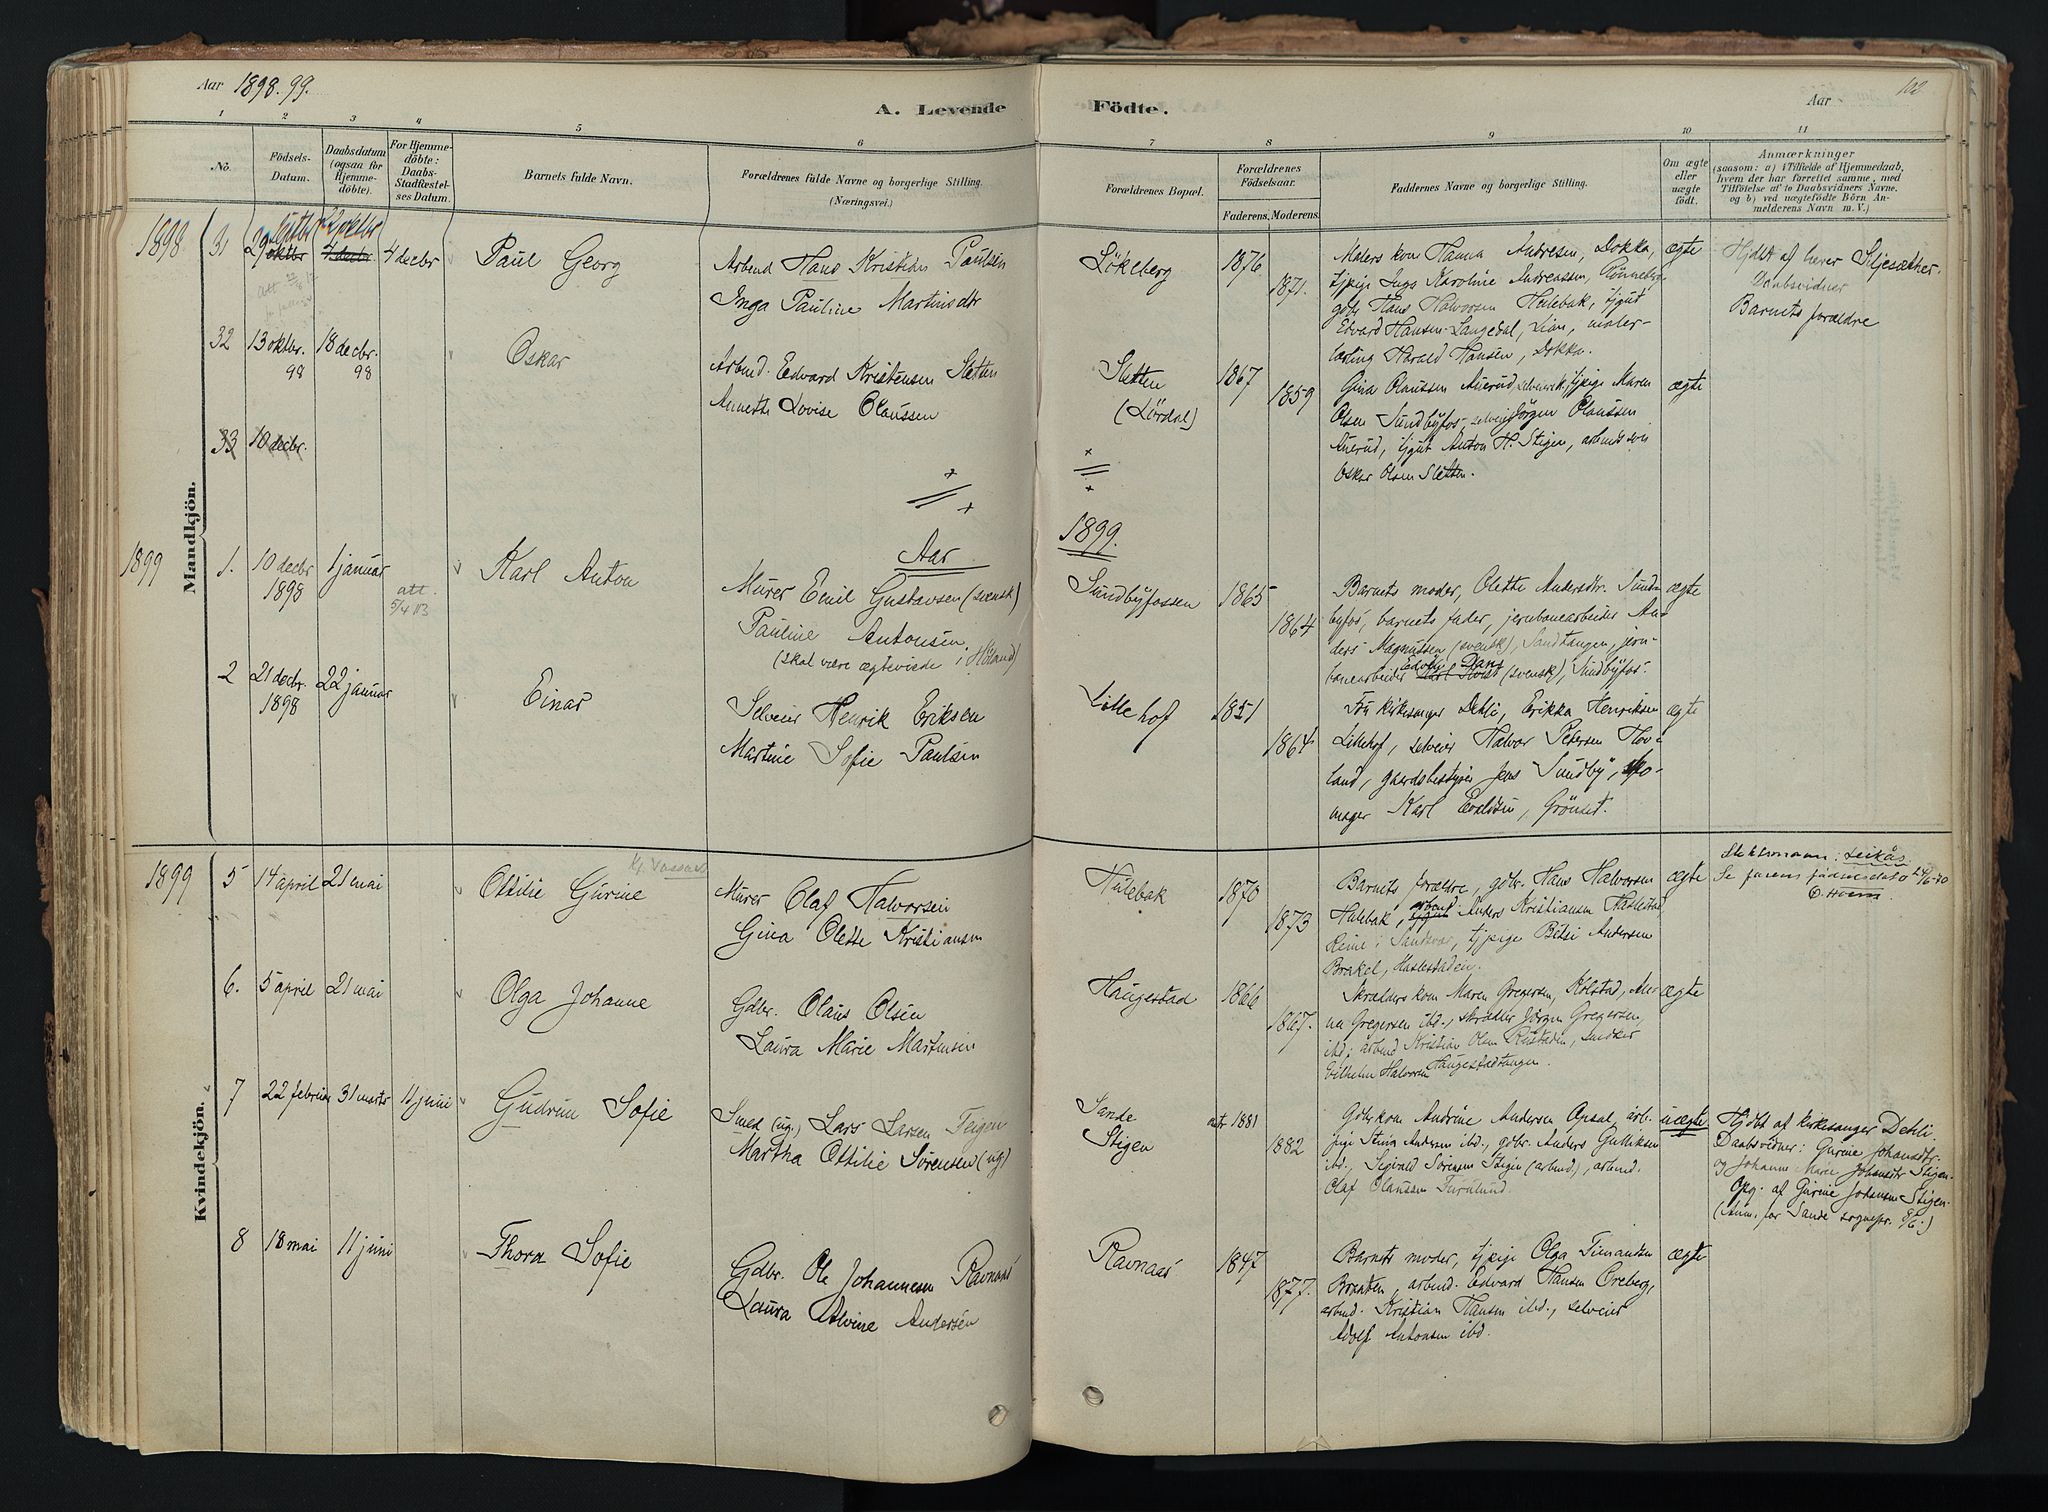 Aar 1898. 99.
A. Levende Födte.
Aar
102
1 2 3 4 5 6 7 8 9 10 11
No.
Födsels-Datum.
Daabsdatum (ogsaa for Hjemme-döbte).
For Hjemme-döbte: Daabs-Stadfæstel-ses Datum.
Barnets fulde Navn.
Forældrenes fulde Navne og borgerlige Stilling.
(Næringsvei.)
Forældrenes Bopæl.
Forældrenes Födselsaar.
Faderens. Moderens.
Faddernes Navne og borgerlige Stilling.
Om ægte eller uægte födt.
Anmærkninger
(saasom: a) i Tilfælde af Hjemmedaab,
hvem der har forrettet samme, med
Tilföielse af to Daabsvidners Navne.
og b) ved uægtefödte Börn An-
melderens Navn m. V.)
Mandkjön.
1898
31 29 oktbr 4 decbr 4 decbr Paul Georg
Arbmd Hans Kristian Paulsen
Inga Pauline Martinsdtr
Lökeberg 1876 1871.
Malers kon Hanna Andresen, Dokka,
tjpige Inga Karoline Andreassen, Rönneberg
gdbr Hans Halvorsen Hulebak, tjgut
Edvard Hansen Langedal, Lian, maler-
lærling Harald Hansen, Dokka.
ægte
Hjdbt af lærer Siljesæther.
Daabsvidner
Barnets forældre
32 13 oktbr. 98 18 decbr. 98 Oskar
Arbmd. Edvard Kristensen Sletten
Annette Lovise Olaussen
Sletten (Lördal) 1867 1859
Gina Olaussen Auerud, selveiersk, tjpige Maren
Olsen Sundbyfos, selveier Jörgen Olaussen
Auerud, tjgut Anton H. Stigen, arbmds sön
Oskar Olsen Sletten.
ægte
33 10 decbr.
Aar 1899.
1899
1. 10 decbr 1898 1 januar att. 5/4 113 Karl Anton
Murer Emil Gustavsen (svensk)
Pauline Antonsen
(skal være ægteviede i Höland)
Sundbyfossen 1865 1864
Barnets moder, Olette Andersdtr. Sund-
byfos, barnets fader, jernbanearbeider An-
ders Magnussen (svensk), Sandtangen, jern-
banearbeider (svensk), Sundbyfos.
ægte
2 21 decbr. 1898 22 januar Einar
Selveier Henrik Eriksen
Martine Sofie Paulsen
Lille hof 1851 1864
Fru kirkesanger Dehli, Erikka Henriksen
Lillehof, selveier Halvor Petersen Hov-
land, gaardsbestyrer Jens Sundby, sko-
mager Karl Evaldsen, Grönset.
ægte
Kvindekjön.
1899
5 14 april 21 mai Ottilie Gurine
Murer Olaf Halvorsen
Gina Olette Kristiansen
Hulebak 1870 1873
Barnets forældre, gdbr. Hans Halvorsen
Hulebak, arbmd Anders Kristiansen Haslestad
Reine i Sandsvær, tjpige Betsi Andersen
Brakel, Haslestaden.
ægte
6. 5 april 21 mai Olga Johanne
Gdbr. Olaus Olsen
Laura Marie Martinsen
Haugestad 1866 1867.
Skrædders kon Maren Gregersen, Kolstad, An-
na Gregersen ibd., skrædder Jörgen Gregersen,
ibd., arbmd Kristian Olsen Rustaden, snedker
Vilhelm Halvorsen Haugestadtangen.
ægte
7 22 februar 31 marts 11 juni Gudrun Sofie
Smed (ug.) Lars Larsen Teigen
Martha Ottilie Sörensen (ug)
Sande
Stigen
1881 1882
Gdbrkom Andrine Andersen Opsal, arb.
pige Stina Andersen ibd., gdbr. Anders Gulliksen
ibd., Sigvald Sörensen Stigen (arbmd), arbmd.
Olaf Olaussen Furulund.
uægte
Hjdbt af kirkesanger Dehli.
Daabsvidner: Gurine Johansdtr.
og Johanne Marie Johansdtr Stigen.
Opg. af Gurine Johansen Stigen.
(Anm. for Sande sognepr. 8/6.)
8 18 mai 11 juni Thora Sofie
Gdbr. Ole Johannesen Ravnaas
Laura Alvine Andersen
Ravnaas 1847 1877.
Barnets moder, tjpige Olga Timandsen
Braaten, arbmd. Edvard Hansen Oreberg,
arbmd. Kristian Hansen ibd., selveier
Adolf Antonsen ibd.
ægte